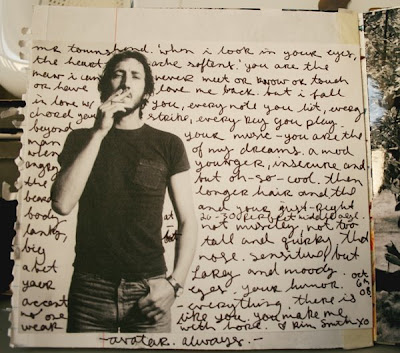 mr townshend. when i look in your eyes,
the heart ache softens. you are the
man i can never meet or know or touch
or have love me back. but i fall
in love w you, every note you hit, every
chord you strike, every key you play.
beyond your music - you are the
man of my dreams. a mod
when younger, insecure and
angry but oh-so-cool. then
the longer hair and the
beard and your just-right
body at 20-30
lanky, not muscley, not too
tall and quirky, that
big nose. sensitive, but
a bet lakey and moody
your eyes. your humor.
accent everything. there is
is one like you. you make me
weak with hope. ♡ kim smith xo
oct
6th
08
- avatar. always. -